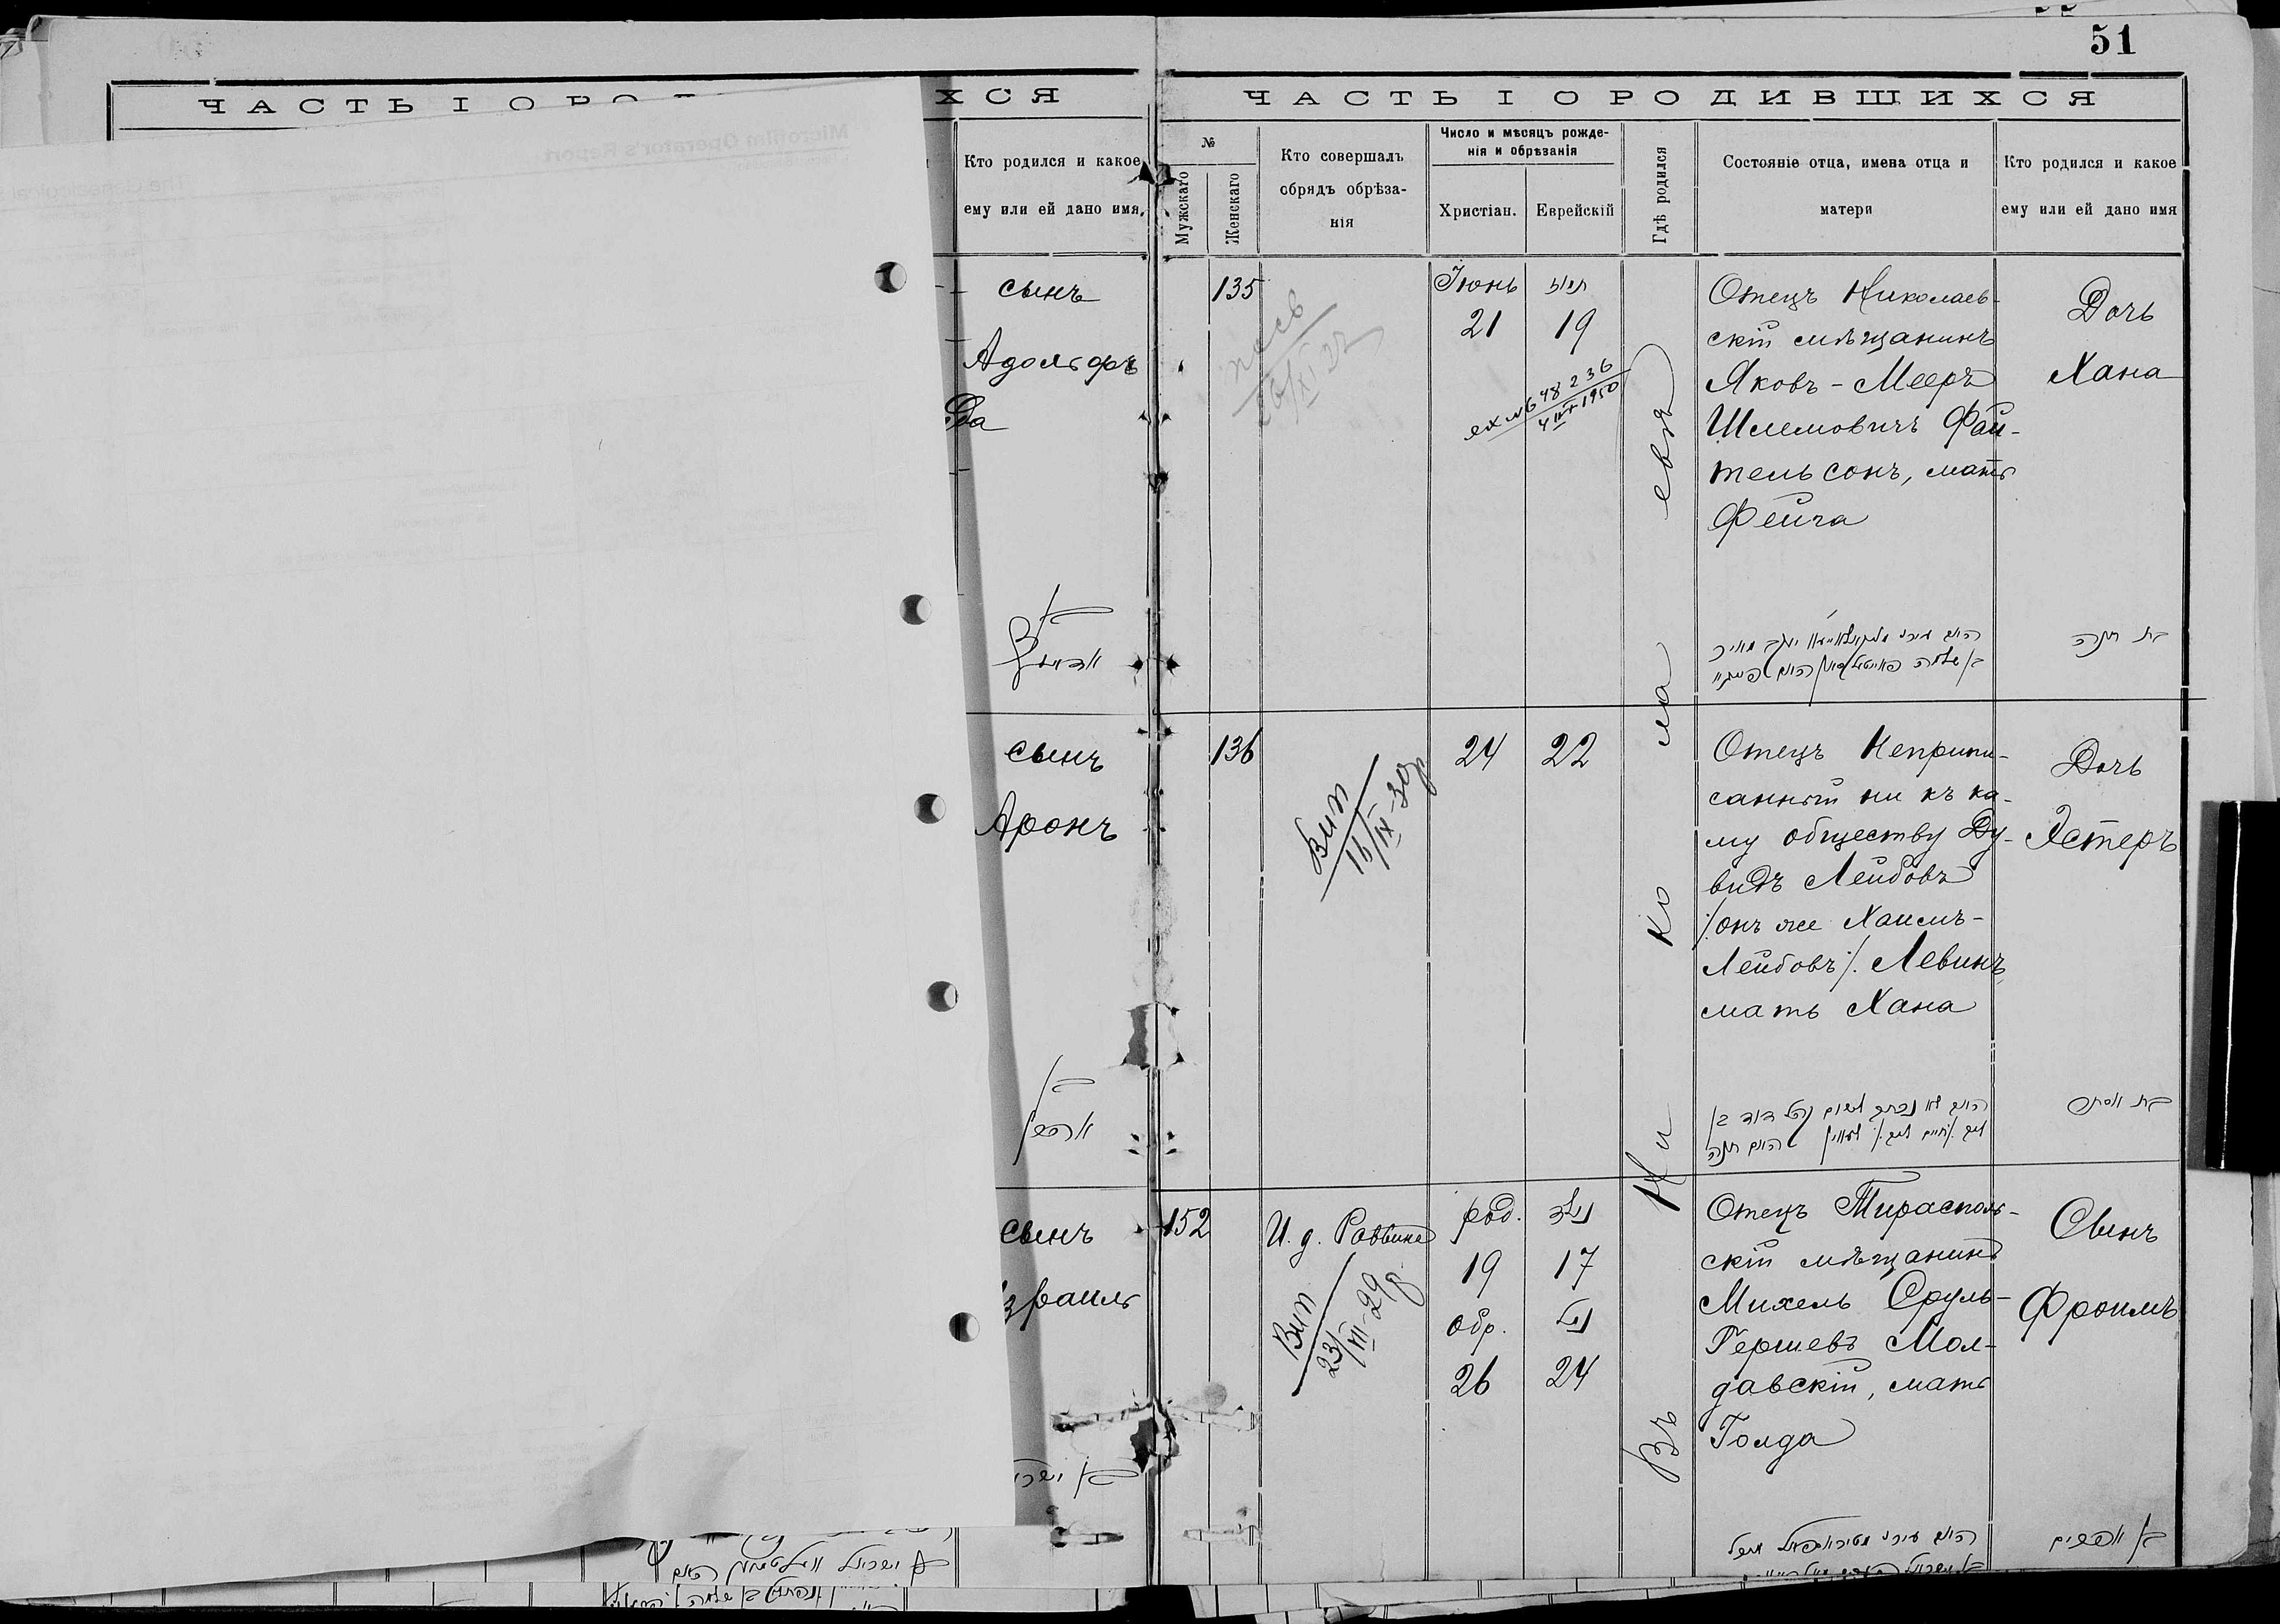 51
ЧАСТЬ I О РОД
ХСЯ
Кто родился и какое
ему или ей дано имя.
сынъ
Адольфъ
сынъ
Аронъ
сынъ
Израиль
ЧАСТЬ I О РОДИВШИХСЯ
№
Мужскаго
Женскаго
Кто совершалъ
обрядъ обрѣза-
нія
Число и мѣсяцъ рожде-
нія и обрѣзанія
Христіан.
Еврейскій
Гдѣ родился
Состояніе отца, имена отца и
матери
Кто родился и какое
ему или ей дано имя
Въ Николаевѣ
135
Іюнь
21
19
48236
4 IV 1950
Отецъ Николаев-
скій мѣщанинъ
Яковъ-Мееръ
Шлемовичъ Фай-
тельсонъ, мать
Фейга
Дочь
Хана
בת חנה
136
Вип
16/IX-30р
24
22
Отецъ Неприпи-
санный ни къ ка-
му обществу Ду-
видъ Лейбовъ
/:онъ же Хаимъ-
Лейбовъ:/. Левинъ
мать Хана
Дочь
Эстеръ
בת אסתר
152
И. д. Раввина
Вип
23/XII-29р
род.
19
17
обр.
26
24
Отецъ Тирасполь-
скій мѣщанинъ
Михель Сруль-
Гершевъ Мол-
давскій, мать
Голда
Сынъ
Фроимъ
בן אפרים